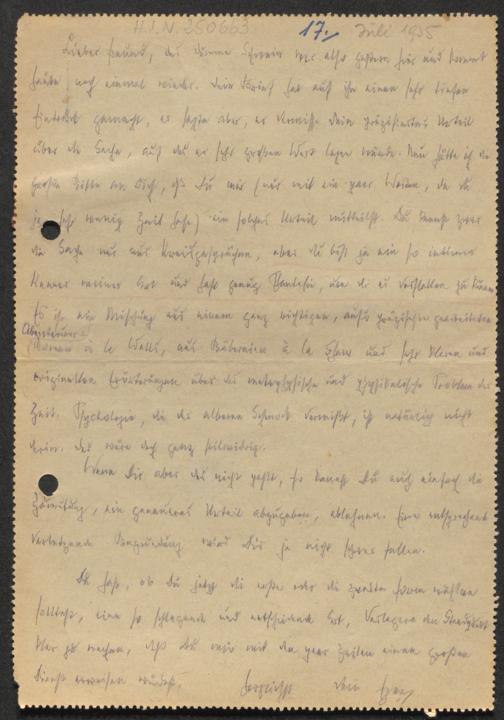 H.I.N. 250663 17. Juli 1935
Lieber Freund, der dumme war also gestern hier und kommt
heute noch einmal wieder. Dein Brief hat auf ihn einen sehr tiefen
Eindruck gemacht, er sagte aber, er vermisse Dein präzisiertes Urteil
über die Sache, auf das er sehr großen Wert legen würde. Nun hätte ich die
große Bitte an Dich, daß Du mir (nur mit ein paar Worten, da Du
ja sehr wenig Zeit hast) ein solches Urteil mitteilst. Du kennst zwar
die Sache nur aus, aber Du bist ja ein so intimer
Kenner meiner Art und hast genug Phantasie, um Dir es vorstellen zu können
so ist eine Mischung aus einem ganz richtigen, aufs präziseste gearbeiteten
Abenteuer
Roman à la Wells, aus à la Shaw und sehr klaren und
originellen Erörterungen über das metaphysische und physikalische Problem der
Zeit. Psychologie, die der alberne Schmock vermißt, ist natürlich nicht
darin. Das wäre doch ganz stilwidrig.
Wenn Dir aber das nicht paßt, so kannst Du auch einfach die
Zumutung, ein genaueres Urteil abzugeben, ablehnen. Eine entsprechend
verletzende Begründung wird Dir ja nicht schwer fallen.
Du hast, ob Du jetzt die erste oder die zweite Form wählen
solltest, eine so schlagende und entscheidende Art, Verlegern den Standpunkt
klar zu machen, daß Du mir mit den paar Zeilen einen großen
Dienst erweisen würdest.
Herzlichst Dein Egon